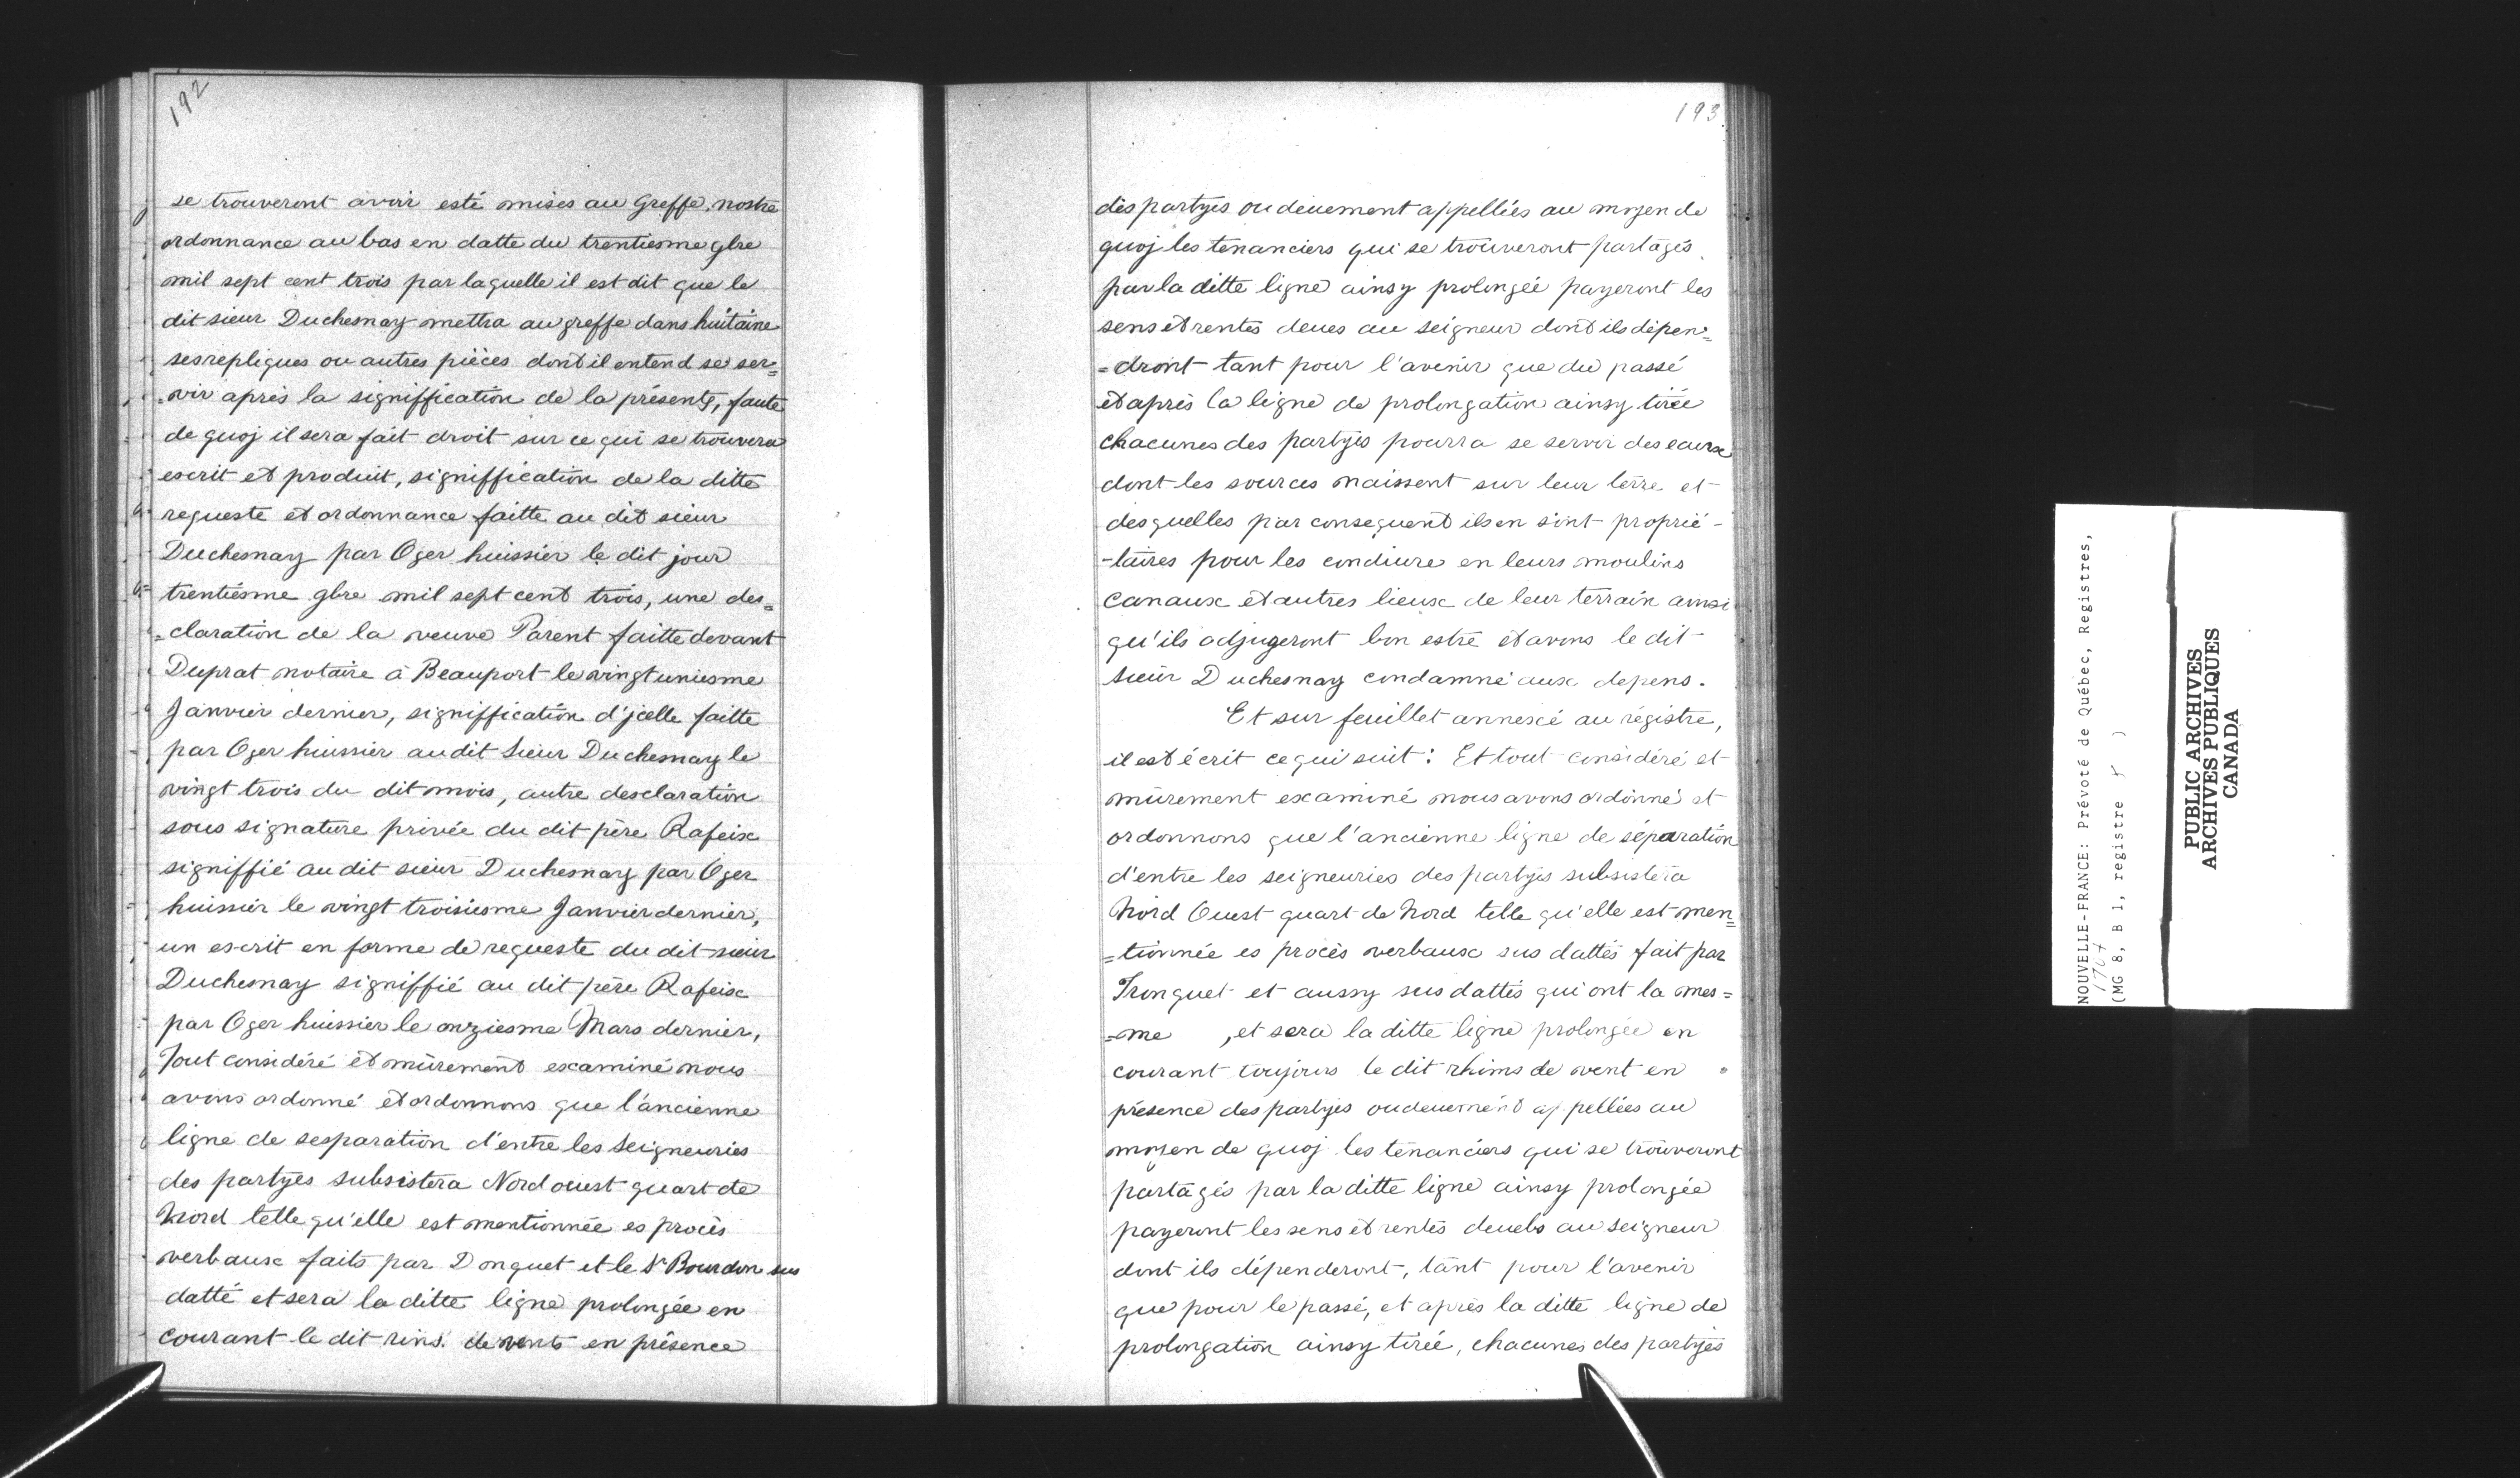 192
se trouveront avoir esté mises au Greffe, nostre
ordonnance au bas en datte du trentiesme gbre
mil sept cent trois par laquelle il est dit que le
dit sieur Duchesnay mettra au greffe dans huitaine
ses repliques ou autres pièces dont il entend se ser=
=vir après la signiffication de la présente, faute
de quoj il sera fait droit sur ce qui se trouvera
escrit et produit, signiffication de la ditte
requeste et ordonnance faitte au dit sieur
Duchesnay par Oger huissier le dit jour
trentiésme gbre mil sept cent trois, une des=
=claration de la veuve Parent faitte devant
Duprat notaire à Beauport le vingt uniesme
Janvier dernier, signiffication d'jcelle faitte
par Oger huissier au dit Sieur Duchesnay le
vingt trois du dit mois, autre desclaration
sous signature privée du dit père Rafeix
signiffié au dit sieur Duchesnay par Oger
huissier le vingt troisiesme Janvier dernier,
un escrit en forme de requeste du dit sieur
Duchesnay signiffié au dit père Rafeix
par Oger huissier le onziesme Mars dernier,
Tout considéré et mûrement examiné nous
avons ordonné et ordonnons que l'ancienne
ligne de sesparation d'entre les Seigneuries
des partyes subsistera Nord ouest quart de
Nord telle qu'elle est mentionnée es procès
verbaux faits par Donquet et le Sr Bourdon sus
datté et sera la ditte ligne prolongée en
courant le dit rins. de vents en présence
193
des partyes ou deuement appellées au moyen de
quoj les tenanciers qui se trouveront partagés
par la ditte ligne ainsy prolongée payeront les
sens et rentes deues au seigneur dont ils dépen=
=dront tant pour l'avenir que du passé
et après la ligne de prolongation ainsy tirée
chacunes des partyes pourra se servir des eaux
dont les sources naissent sur leur terre et
desquelles par consequent ils en sont proprié-
-taires pour les conduire en leurs moulins
canaux et autres lieux de leur terrain ainsi
qu'ils adjugeront bon estre et avons le dit
sieur Duchesnay condamné aux depens.
Et sur feuillet annexé au régistre,
il est écrit ce qui suit : Et tout considéré et
mûrement examiné nous avons ordonné et
ordonnons que l'ancienne ligne de séparation
d'entre les seigneuries des partyes subsistera
Nord Ouest quart de Nord telle qu'elle est men=
=tionnée es procès verbaux sus dattés fait par
Tronquet et aussy sus dattés qui ont la mes=
=me , et sera la ditte ligne prolongée en
courant toujours le dit rhims de vent en
présence des partyes ou deuement appellées au
moyen de quoj les tenanciers qui se trouveront
partagés par la ditte ligne ainsy prolongée
payeront les sens et rentes deuebs au seigneur
dont ils dépenderont, tant pour l'avenir
que pour le passé, et après la ditte ligne de
prolongation ainsy tirée, chacunes des partyes
NOUVELLE-FRANCE: Prévoté de Québec, Registres,
1704
(MG 8, B 1, registre )
PUBLIC ARCHIVES
ARCHIVES PUBLIQUES
CANADA